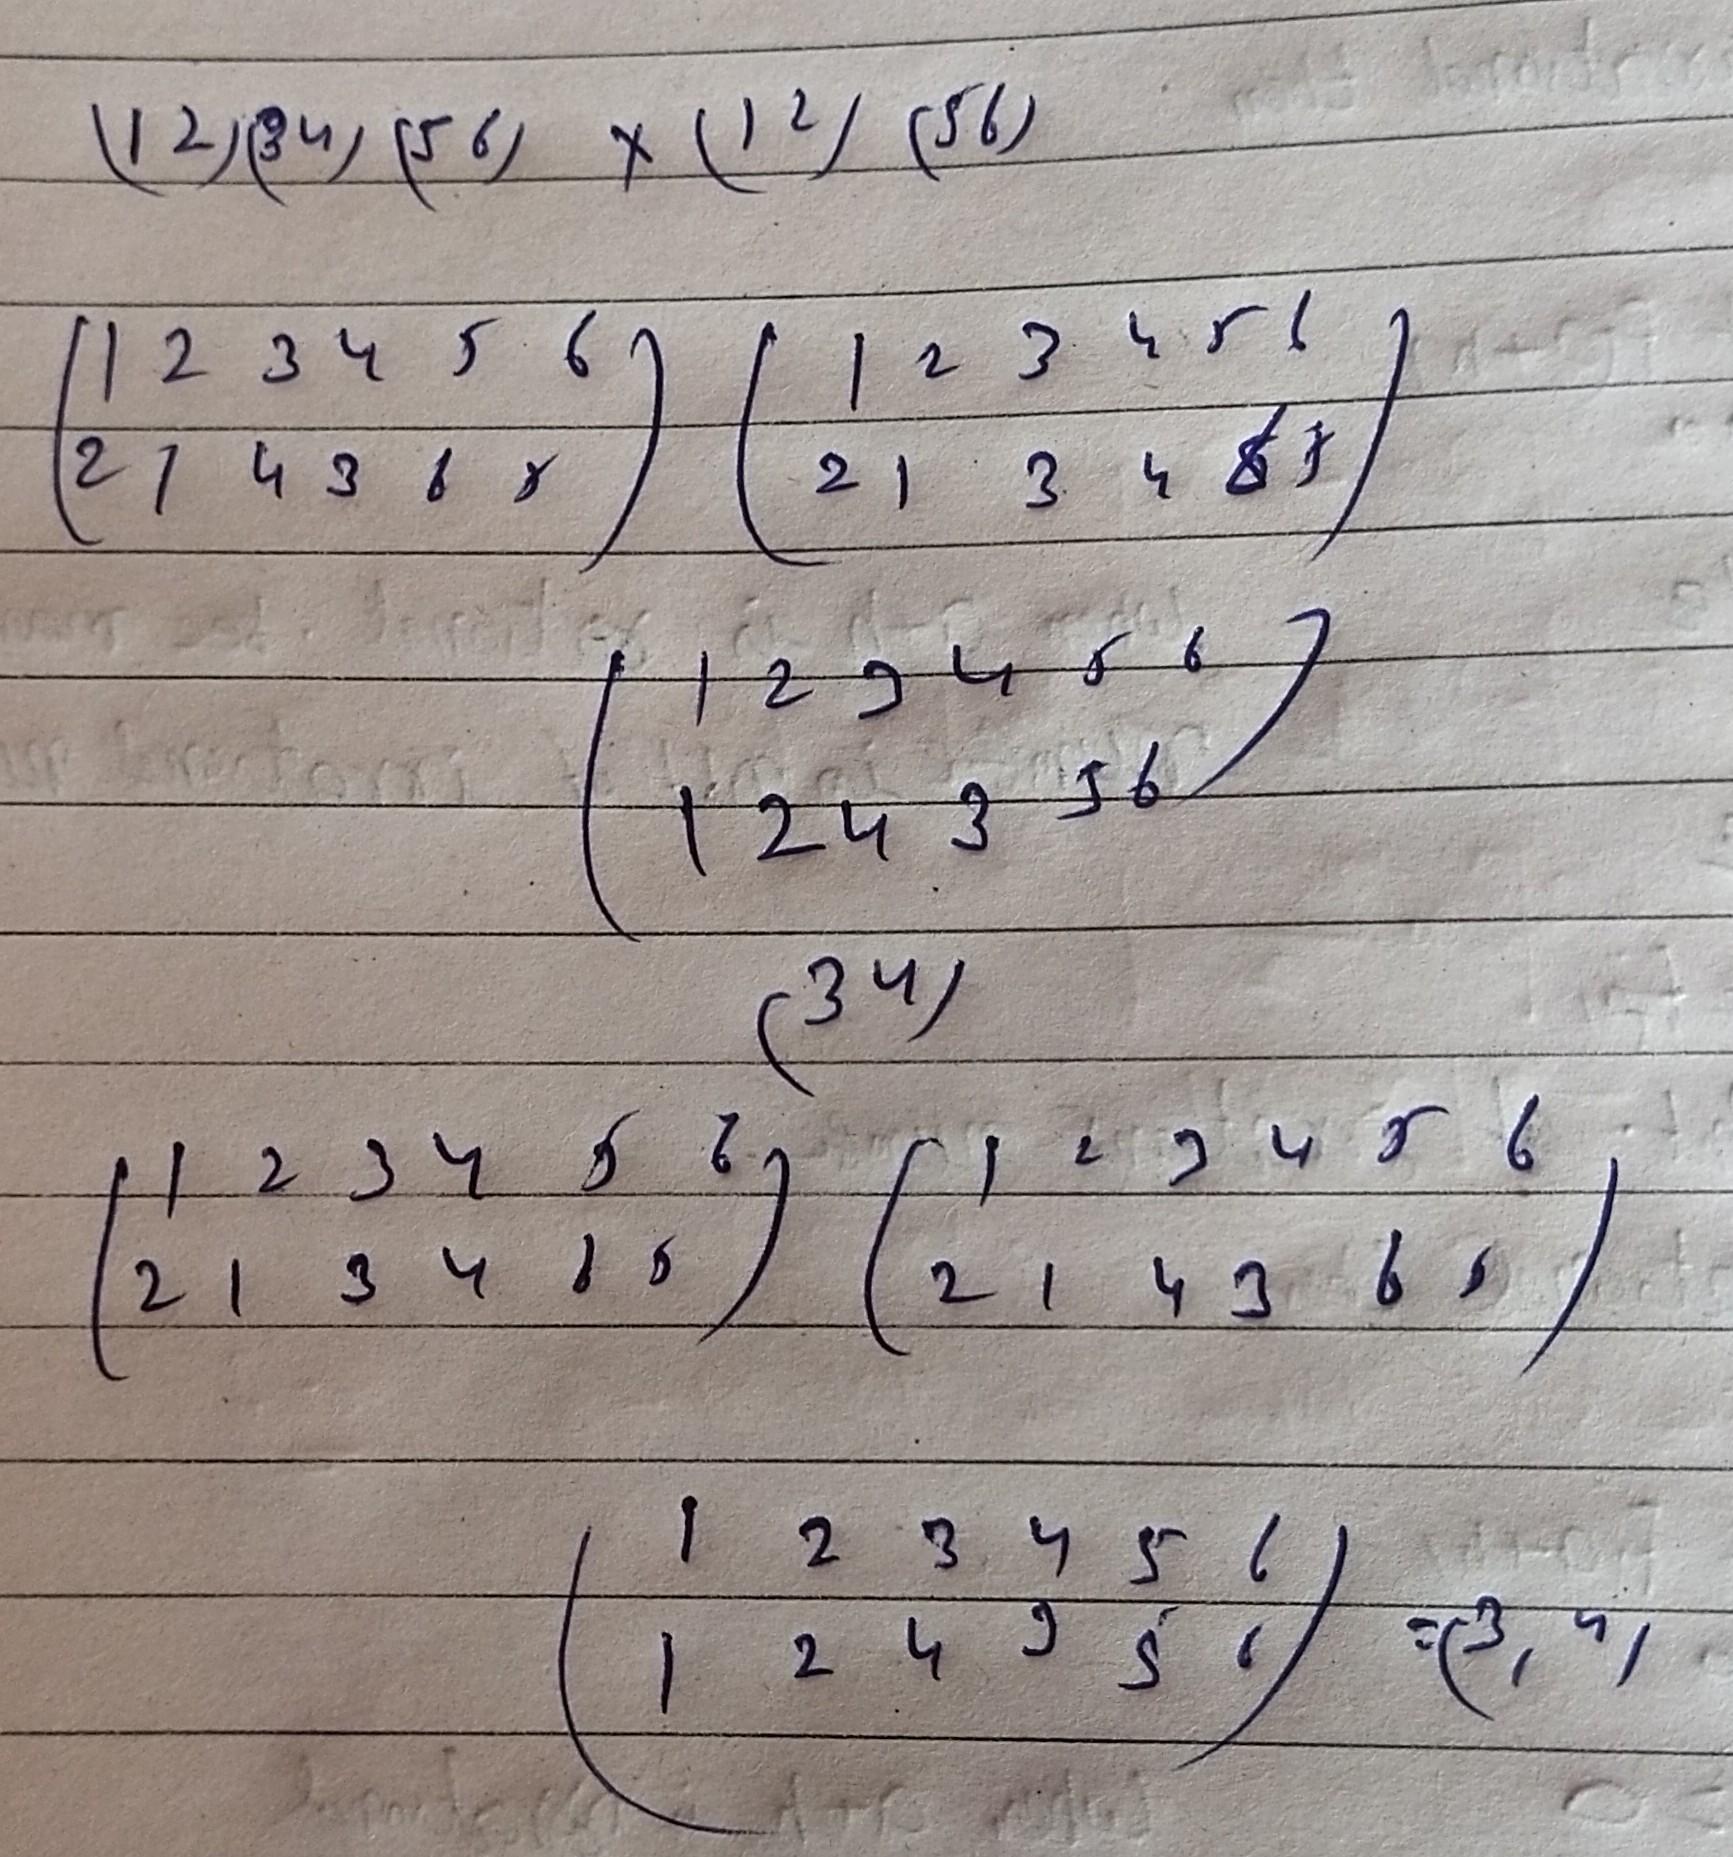 (1 2)(34) (5 6) × (1 2) (56)
(1 2 3 4 5 6) (1 2 3 4 5 6)
(2 1 4 3 6 5) (2 1 3 4 6 5)
(1 2 3 4 5 6)
(1 2 4 3 5 6)
(3 4)
(1 2 3 4 5 6) (1 2 3 4 5 6)
(2 1 3 4 6 5) (2 1 4 3 6 5)
(1 2 3 4 5 6)
(1 2 4 3 5 6) = (3, 4)